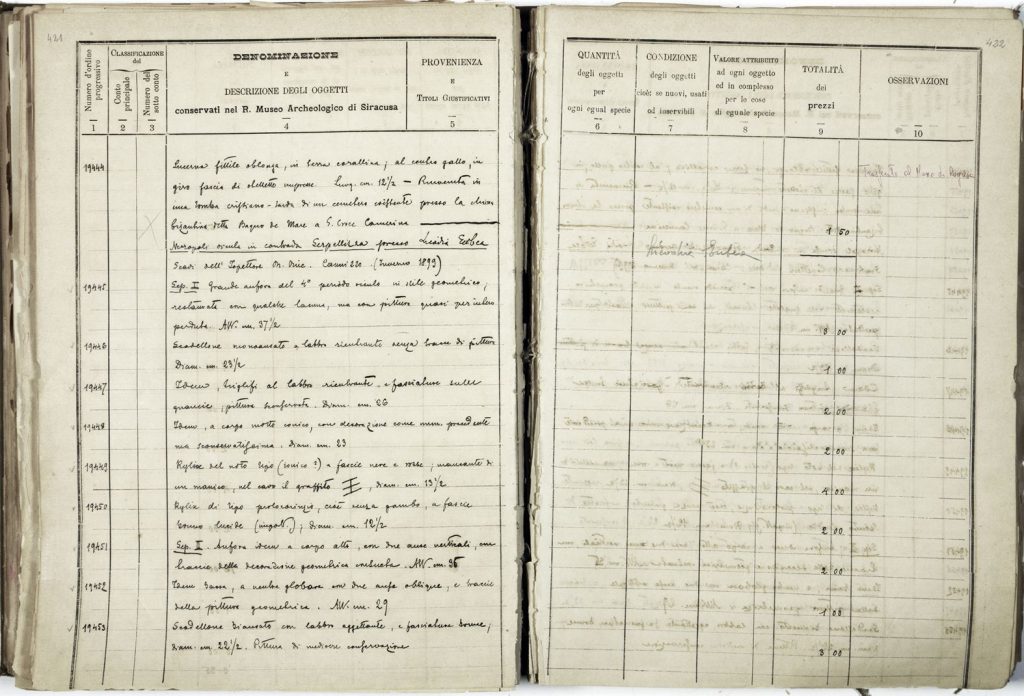 421
Numero d'ordine progressivo
CLASSIFICAZIONE del
Conto principale
Numero del sotto conto
DENOMINAZIONE
E
DESCRIZIONE DEGLI OGGETTI
conservati nel R. Museo Archeologico di Siracusa
PROVENIENZA
E
TITOLI GIUSTIFICATIVI
1 2 3 4 5
19444 Lucerna fittile oblonga, in terra corallina; al centro gallo, in
giro fascia di impresse. Lung. cm. 12 1/2 – Rinvenuta in
una tomba cristiano-tarda di un cimitero esistente presso la chiesa
bizantina detta Bagno de Mare a S. Croce Camerina
Necropoli sicula in contrada presso Licodia Eubea
Scavi dell' Ispettore (Inverno 1899)
19445 Sep. I Grande anfora del 4° periodo siculo in stile geometrico,
restaurata con qualche lacuna, ma con pitture quasi per intero
perdute. Alt. cm. 37 1/2
19446 Scodellone monoansato a labbro rientrante senza tracce di pittura
Diam. cm. 23 1/2
19447 Idem, triglifi al labbro rientrante e fasciature sulle
guancie; pitture sconservate. Diam. cm. 26
19448 Idem, a corpo molto conico, con decorazione come num. precedente
ma sconservatissima. Diam. cm. 23
19449 Kylix del noto tipo (ionico?) a fascie nere e rosse; mancante di
un manico, nel cavo il graffito , diam. cm. 13 1/2
19450 Kylix di tipo protocorinzio, cioè senza gambo, a fascie
brune lucide ; diam. cm. 12 1/2
19451 Sep. II Anfora idem a corpo alto, con due anse verticali, con
traccie della decorazione geometrica Alt. cm. 36
19452 Idem bassa, a ventre globare con due anse oblique, e traccie
della pittura geometrica. Alt. cm. 29
19453 Scodellone biansato con labbro aggettante, e fasciature brune;
diam. cm. 22 1/2. Pittura di mediocre conservazione
422
QUANTITÀ
degli oggetti
per
ogni egual specie
CONDIZIONE
degli oggetti
cioè: se nuovi, usati
od inservibili
VALORE ATTRIBUITO
ad ogni oggetto
ed in complesso
per le cose
di eguale specie
TOTALITÀ
dei
prezzi
OSSERVAZIONI
6 7 8 9 10
al Museo di Ragusa
1 50
8 00
1 00
2 00
2 00
4 00
2 00
2 00
1 00
3 00